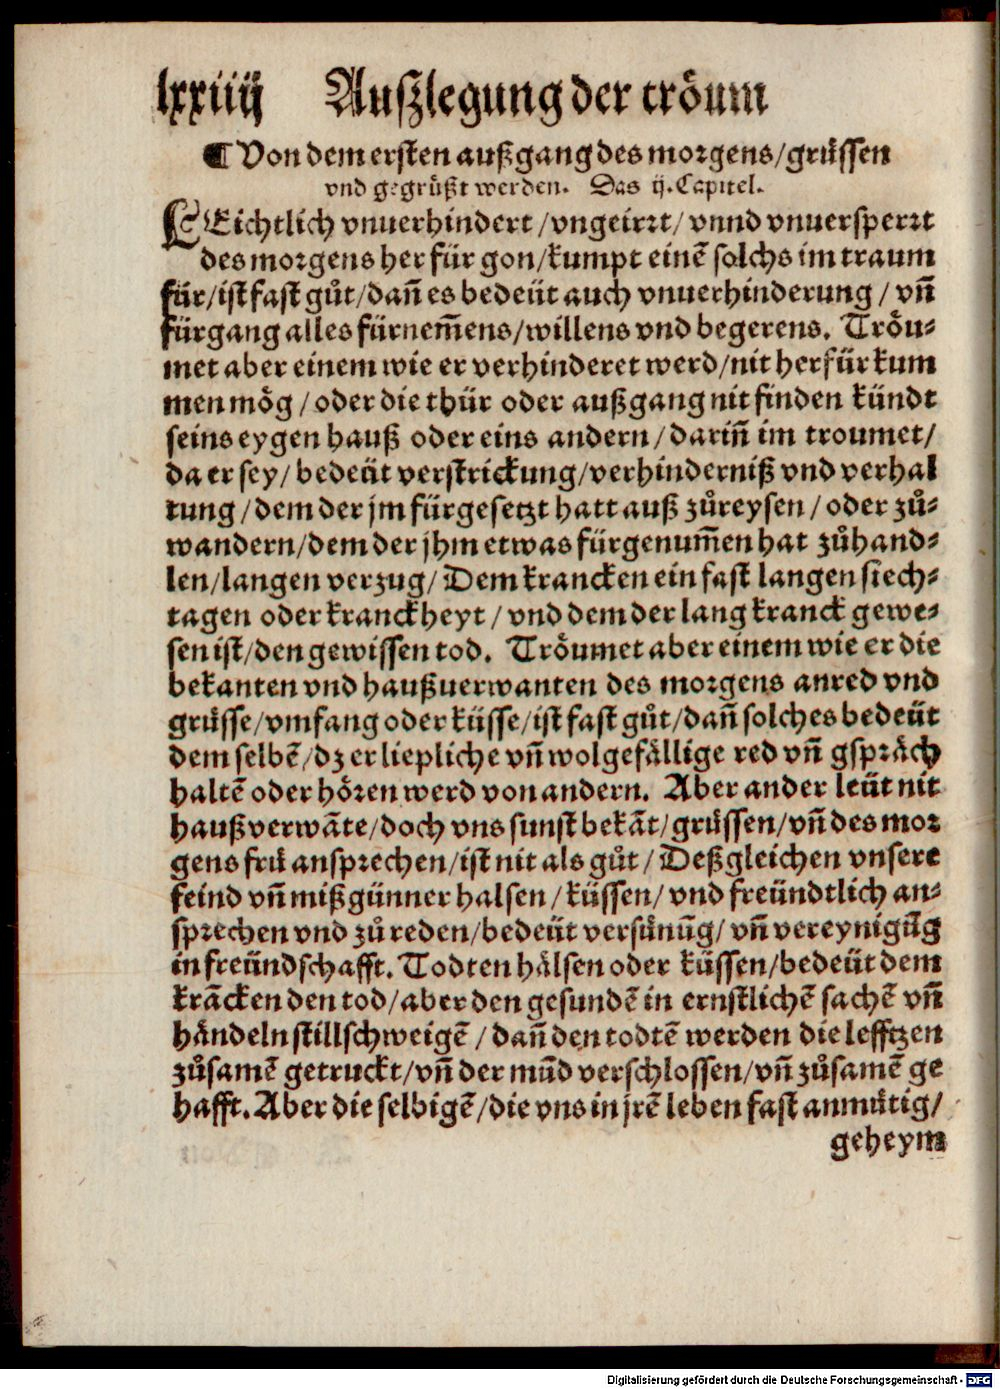 lxxiiij Auſzlegung der tröum
¶ Von dem erſten außgang des morgens/grüſſen
vnd gegrüßt werden. Das ij. Capitel.
LEichtlich vnuerhindert/vngeirrt/vnnd vnuerſperrt
des morgens her für gon/kumpt einē ſolchs im traum
für/iſt faſt gůt/dañ es bedeüt auch vnuerhinderung/vñ
fürgang alles fürnem̃ens/willens vnd begerens. Tröu⸗
met aber einem wie er verhinderet werd/nit herfür kum
men mög/oder die thür oder außgang nit finden kündt
ſeins eygen hauß oder eins andern/dariñ im troumet/
da er ſey/bedeüt verſtrickung/verhinderniß vnd verhal
tung/dem der jm fürgeſetzt hatt auß zůreyſen/oder zů⸗
wandern/dem der jhm etwas fürgenum̃en hat zůhand⸗
len/langen verzug/Dem krancken ein faſt langen ſiech⸗
tagen oder kranckheyt/vnd dem der lang kranck gewe⸗
ſen iſt/den gewiſſen tod. Tröumet aber einem wie er die
bekanten vnd haußuerwanten des morgens anred vnd
grüſſe/vmfang oder küſſe/iſt faſt gůt/dañ ſolches bedeüt
dem ſelbē/dz er liepliche vñ wolgefällige red vñ gſpräch
haltē oder hören werd von andern. Aber ander leüt nit
haußverwāte/doch vns ſunſt bekāt/grüſſen/vñ des mor
gens frü anſprechen/iſt nit als gůt/Deßgleichen vnſere
feind vñ mißgünner halſen/küſſen/vnd freündtlich an⸗
ſprechen vnd zů reden/bedeüt verſünūg/vñ vereynigūg
in freündſchafft. Todten hälſen oder küſſen/bedeüt dem
krācken den tod/aber den geſundē in ernſtlichē ſachē vñ
händeln ſtillſchweigē/dañ den todtē werden die lefftzen
zůſamē getruckt/vñ der mūd verſchloſſen/vñ zůſamē ge
hafft. Aber die ſelbigē/die vns in jrē leben faſt anmütig/
geheym
Digitalisierung gefördert durch die Deutsche Forschungsgemeinschaft - DFG